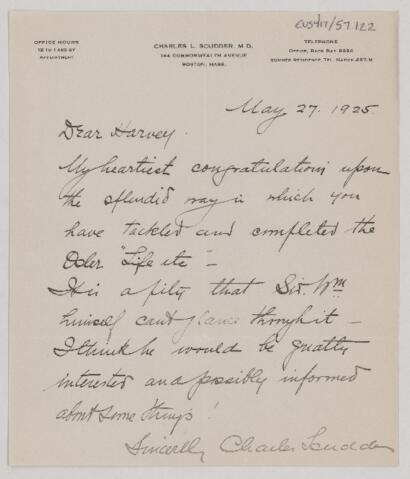 CUS417/57.122
OFFICE HOURS
12 TO 1 AND BY
APPOINTMENT
CHARLES L. SCUDDER, M.D.
144 COMMONWEALTH AVENUE
BOSTON, MASS.
TELEPHONE
OFFICE, BACK BAY
SUMMER RESIDENCE, TEL.
May 27. 1925.
Dear Harvey.
My heartiest congratulations upon
the splendid way in which you
have tackled and completed the
Osler "Life etc" –
It is a pity that Sir. Wm
himself cant glance through it –
I think he would be greatly
interested and possibly informed
about some things!
Sincerely Charles Scudder